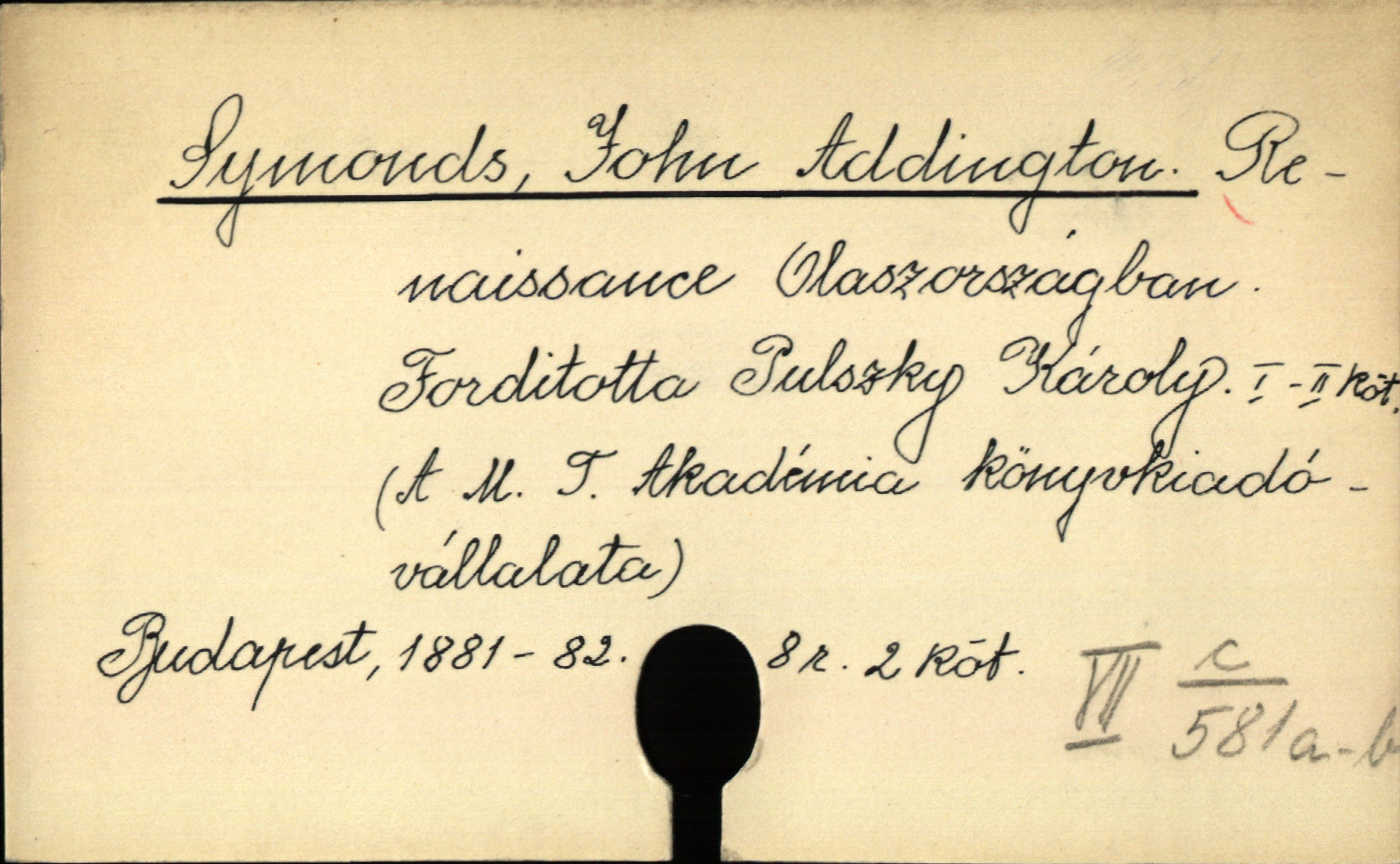 Symonds, John Addington. Re-
naissance Olaszországban.
Forditotta Pulszky Károly. I-II köt.
(A M. T. Akadémia könyvkiadó-
vállalata)
Budapest, 1881-82. 8 r. 2 köt.
VII c/581 a-b